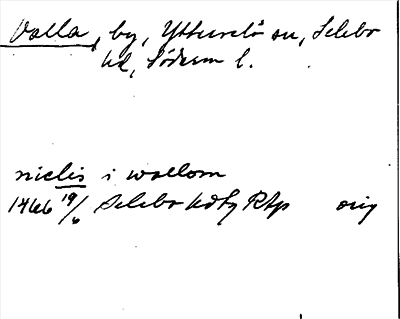 Valla, by, Ytterselö sn, Selebo
hd, Söderm l.
niclis i wallom
1466 19/6 Selebo hdtg RAp orig